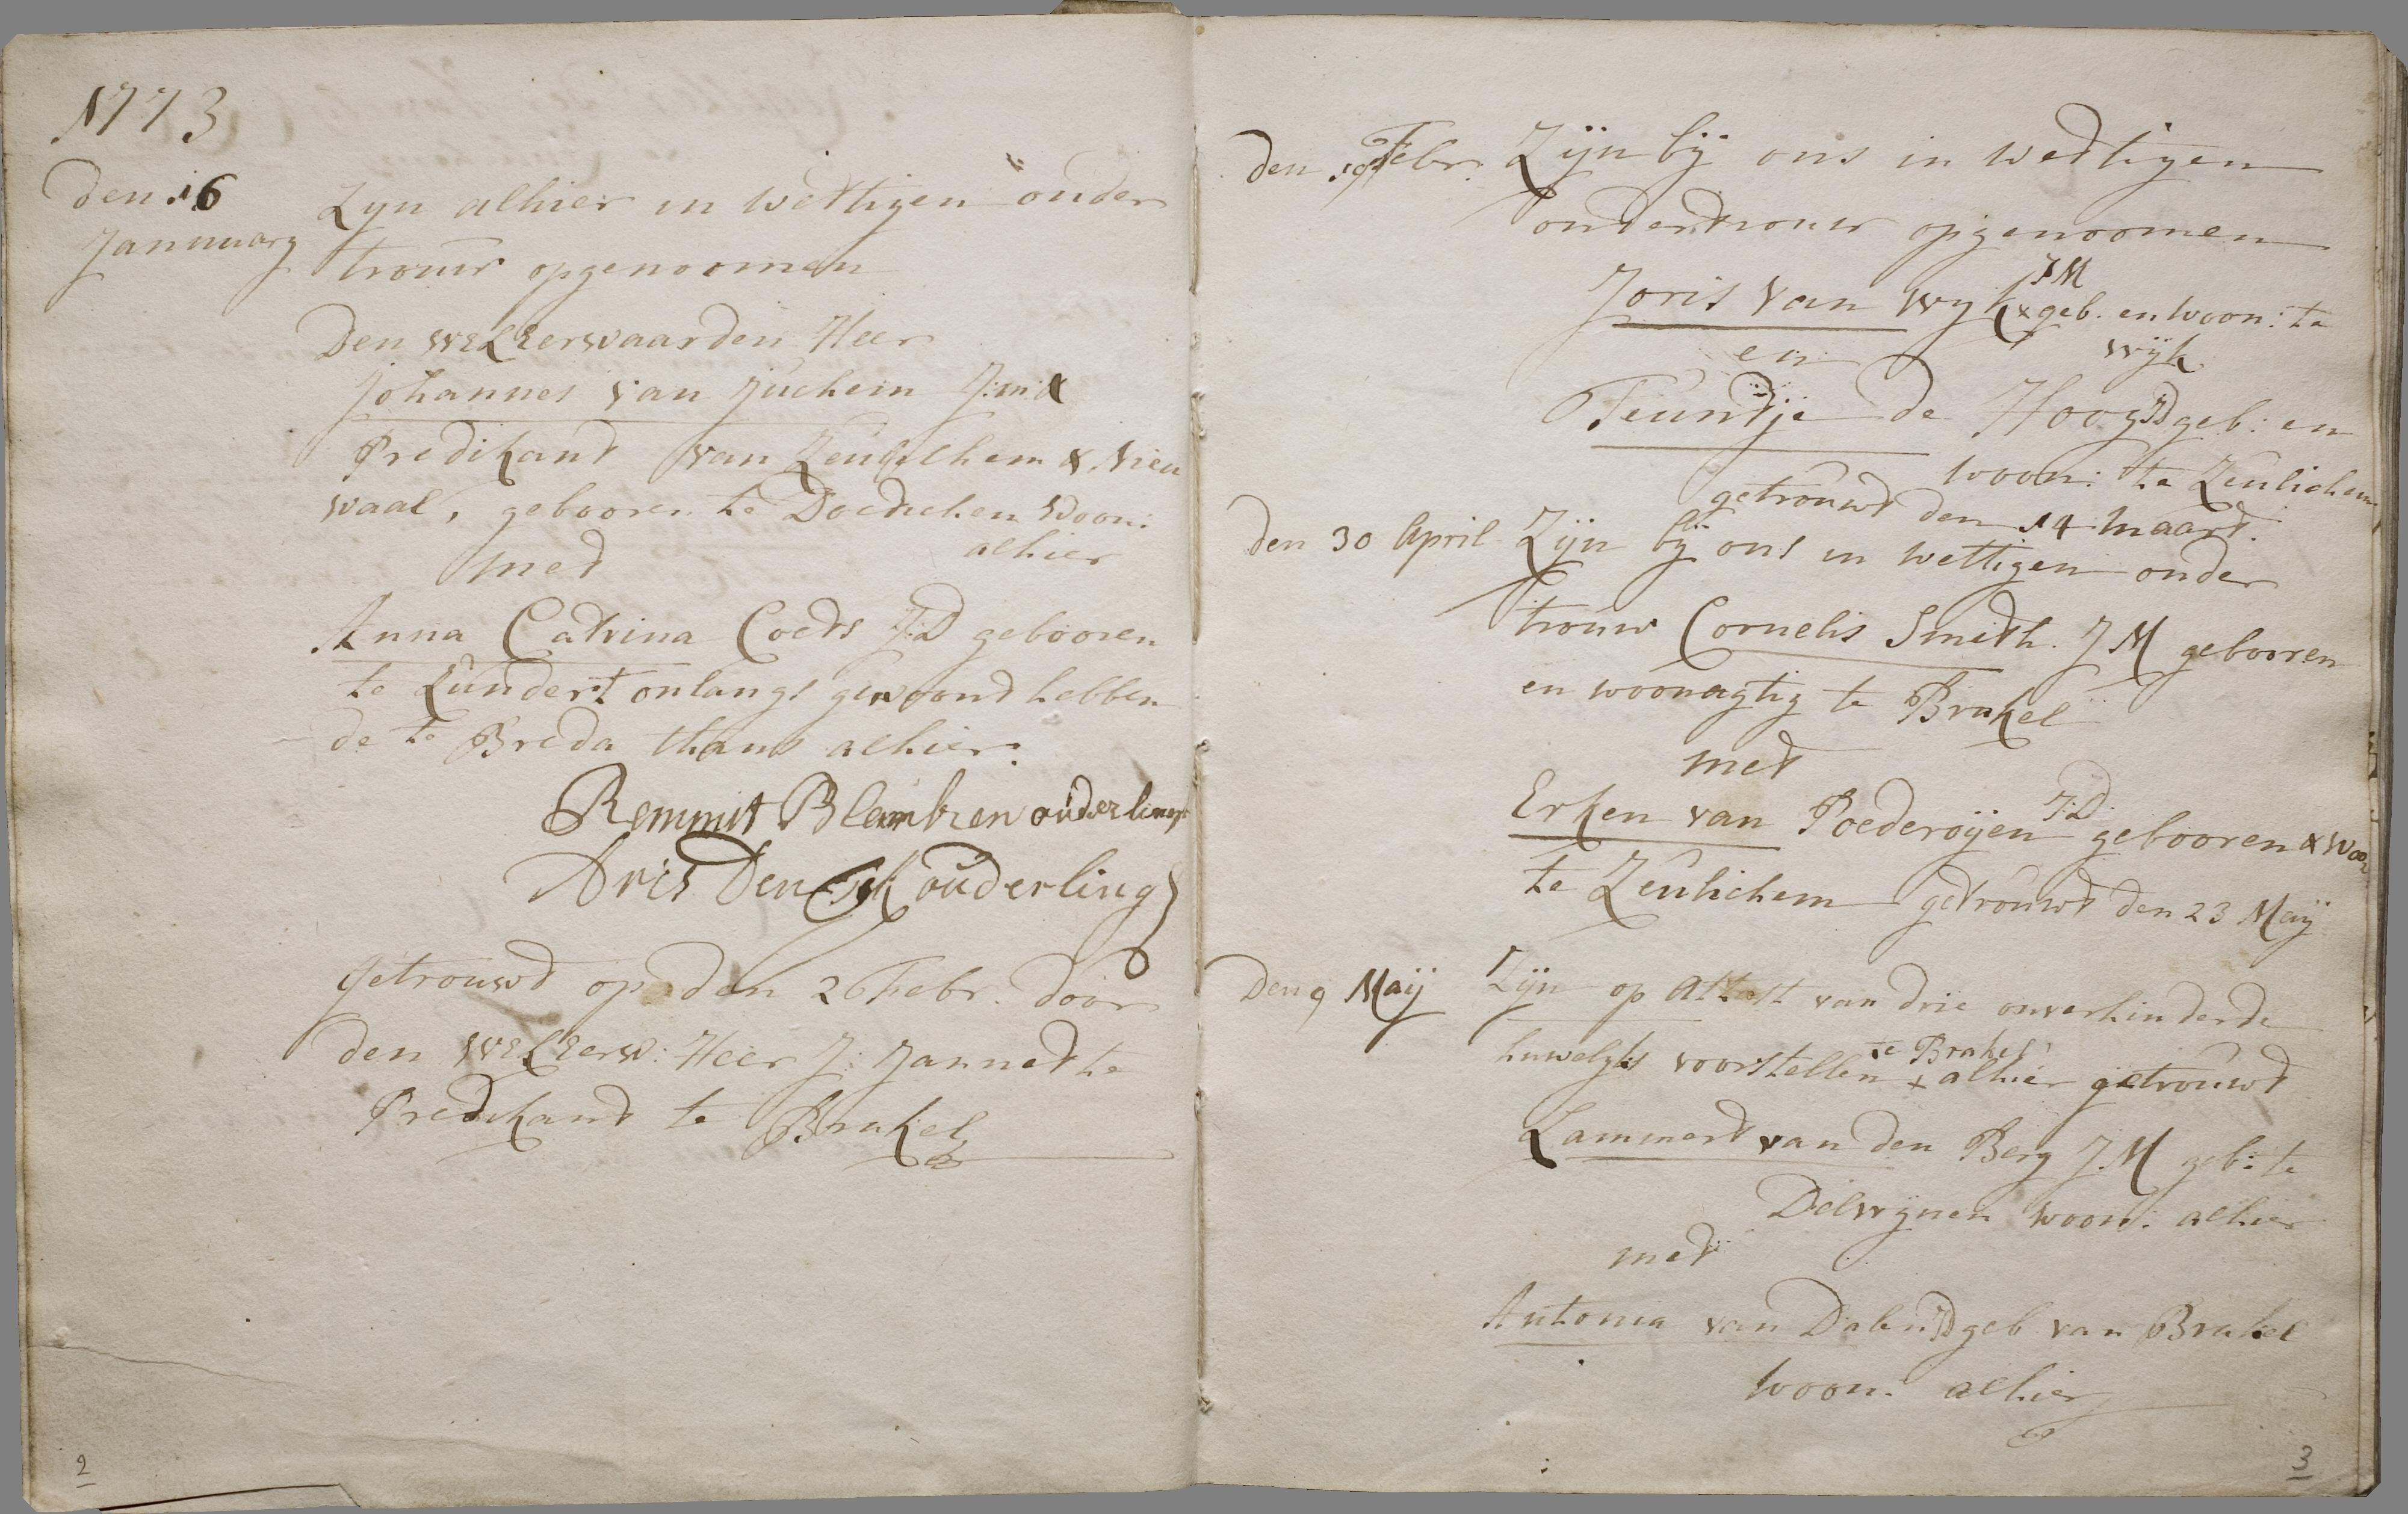 1773
den 16 Zyn alhier in wettigen onder
January trouw opgenoomen
Den WelEerwaarden Heer
Johannes van Juchem J:m: &
Predikant van Zeuylichem & Nieu
waal, gebooren te Doetichem woon:
alhier
met
Anna Catrina Coets J:D gebooren
te Zundert onlangs gewoond hebben
de te Breda thans alhier.
Remmit Blanken ouderling
Aris Den ouderling
Getrouwd op den 2 Febr. door
den WelEerw: Heer J: Jannette
Predikant te Brakel
2
den 19 Febr. Zijn bij ons in wettigen
ondertrouw opgenoomen
JM
Joris van Wyk x geb. en woon: te
en wijk
Teuntje de Hoog JD geb: en
woon: te Zeulichem
getrouwt den 14 Maart.
den 30 April Zijn bij ons in wettigen onder
trouw Cornelis Smith. J M gebooren
en woonagtig te Brakel
met
Erken van Poederoijen J:D. gebooren & woon
te Zeulichem getrouwt den 23 Maij
Den 9 Maij Zijn op Attest van drie onverhinderde
te Brakel
huwelyks voorstellen x alhier getrouwt
Lammert van den Berg J. M geb: te
Delwijnen woon: alhier
met
Antonia van Dalen JD geb van Brakel
woon: alhier
3